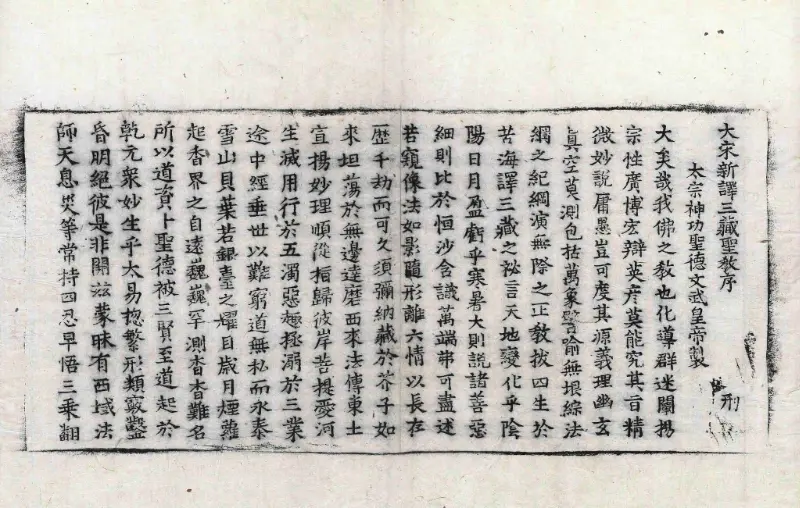 大宋新譯三藏聖教序
太宗神功聖德文武皇帝製
刑
大矣哉我佛之教也化導群迷闡揚
宗性廣博宏辯英彦莫能究其旨精
微妙說庸愚豈可度其源義理幽玄
真空莫測包括萬象譬喻無垠綜法
網之紀綱演無際之正教拔四生於
苦海譯三藏之祕言天地變化乎陰
陽日月盈虧乎寒暑大則說諸善惡
細則比於恒沙含識萬端弗可盡述
若窺像法如影隨形離六情以長存
歷千劫而可久須彌納藏於芥子如
來坦蕩於無邊達磨西來法傳東土
宣揚妙理順從指歸彼岸菩提愛河
生滅用行於五濁惡趣拯溺於三業
途中經垂世以難窮道無私而永泰
雪山貝葉若銀臺之耀目歲月煙蘿
起香界之自遠巍巍罕測杳杳難名
所以道資十聖德被三賢至道起於
乾元衆妙生乎太易揔繁形類竅鑿
昏明絕彼是非開茲蒙昧有西域法
師天息災等常持四忍早悟三乘翻